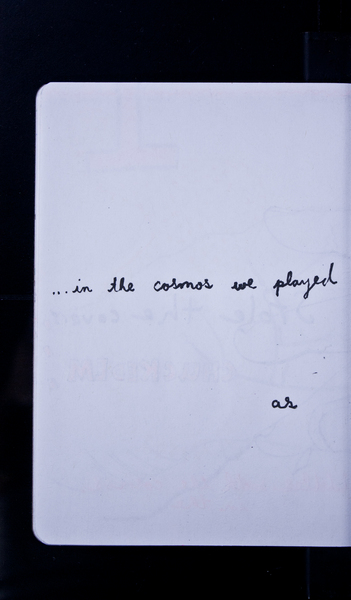 ...in the cosmos we played
as